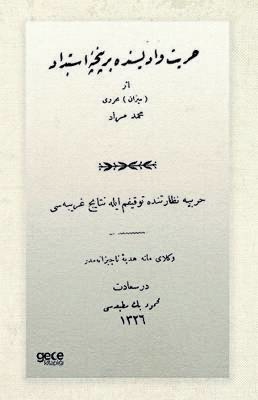 حریت وادیسنده بر پنجهٔ استبداد
اثر
(میزان) محرری
محمد مراد
حربیه نظارتنده توقیفم ایله نتایج غریبه‌سی
وکلای ملته هدیهٔ ناچیزانه‌مدر
در سعادت
محمود بك مطبعه‌سی
۱۳۲۶
gece